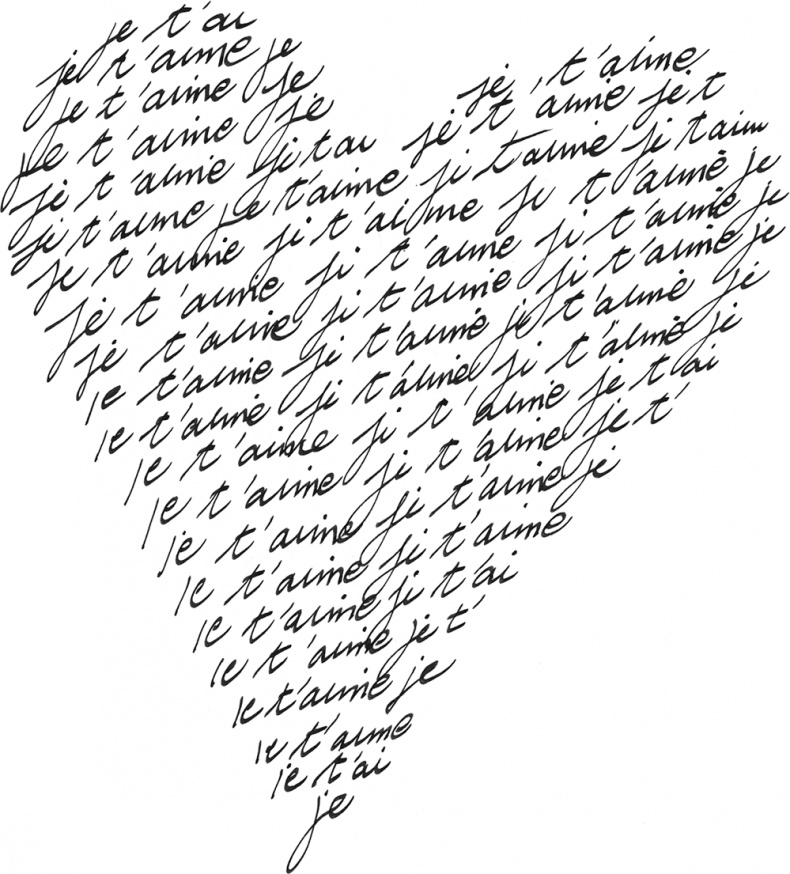 je t'ai
je t'aime je
je t'aime je
je t'aime je
je t'aime
je t'aime je t ai je t'aime je t
je t'aime je t'aime je t'aime je t aim
je t'aime je t'aime je t'aime je
je t'aime je t'aime je t'aime je
je t'aime je t'aime je t'aime je
je t'aime je t'aime je t'aime je
je t'aime je t'aime je t'aime je
je t'aime je t'aime je t'ai
je t'aime je t'aime je t'
je t'aime je t'aime je
je t'aime je t'aime
je t'aime je t'ai
je t'aime je t'
je t'aime je
je t'aime
je t'ai
je